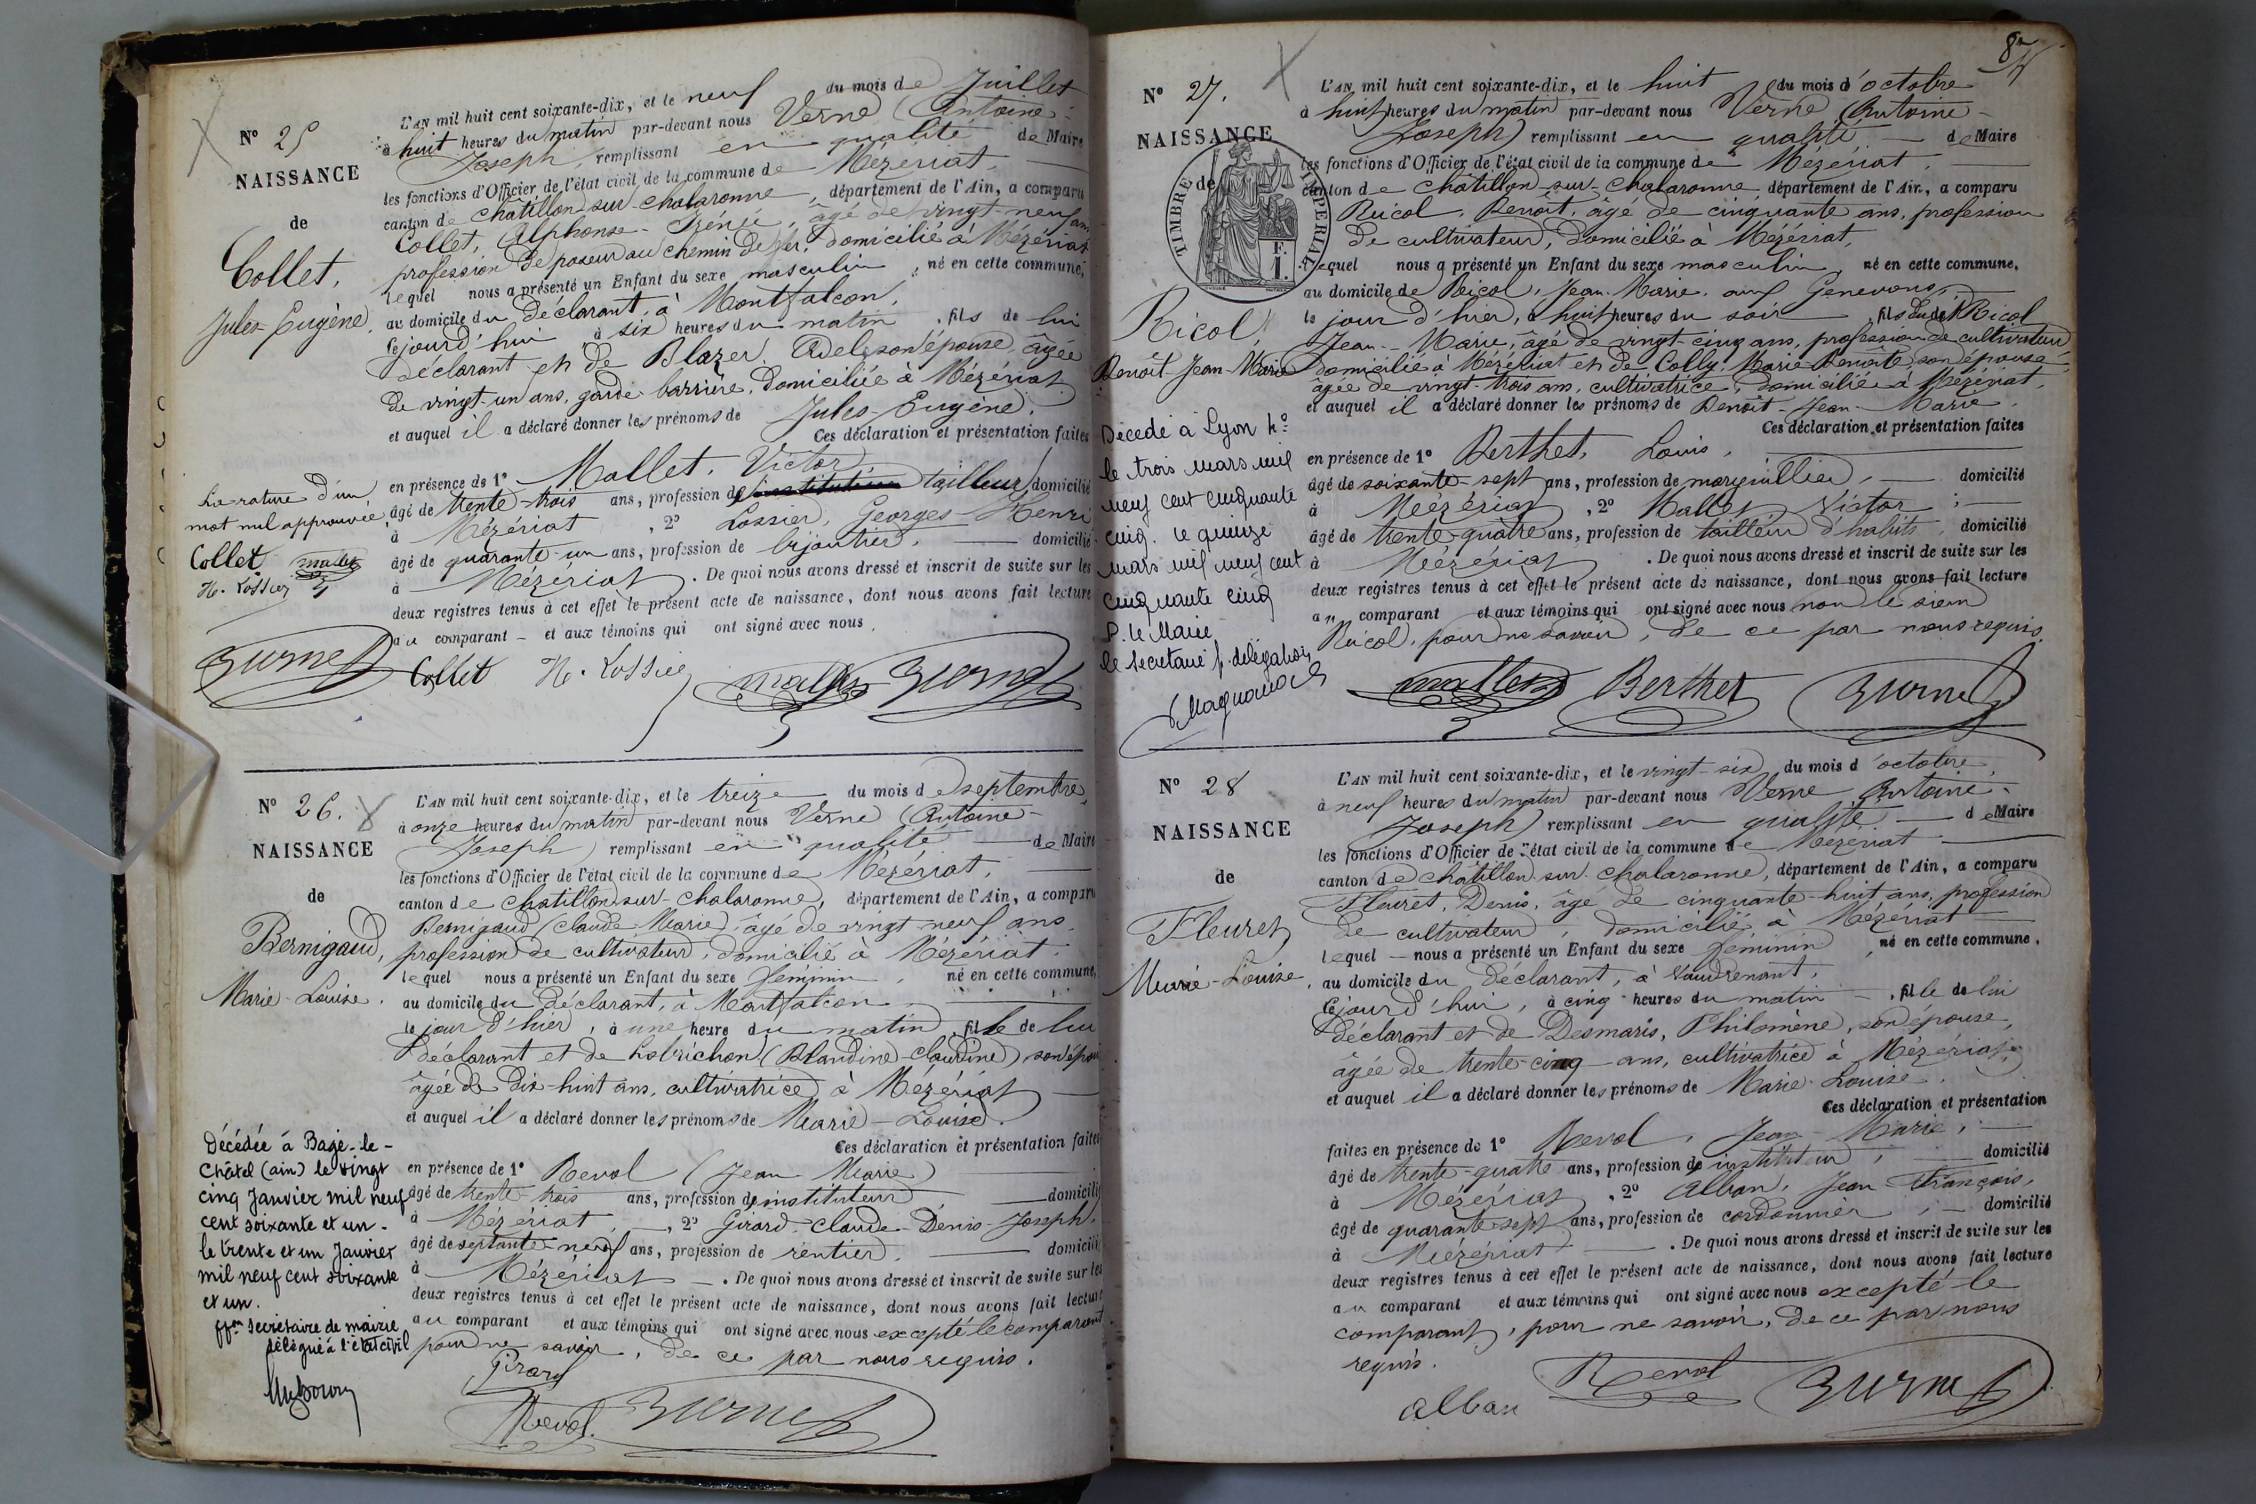 N° 25
NAISSANCE
de
Collet,
Jules-Eugène.
L'AN mil huit cent soixante-dix, et le neuf du mois de Juillet
à huit heures du matin par-devant nous Verne (Antoine-
Joseph) remplissant en qualité de Maire
les fonctions d'Officier de l'état civil de la commune de Mézériat.
canton de Châtillon-sur-Chalaronne, département de l'Ain, a comparu
Collet, Alphonse-Irénée, âgé de vingt-neuf ans
profession de poseur au chemin de fer, domicilié à Mézériat
lequel nous a présenté un Enfant du sexe masculin, né en cette commune,
au domicile du déclarant, à Montfalcon,
cejourd'hui à six heures du matin, fils de lui
déclarant et de Blazer, Adel, son épouse, âgée
de vingt-un ans, garde barrière, domiciliée à Mézériat
et auquel il a déclaré donner les prénoms de Jules-Eugène.
Ces déclaration et présentation faites
en présence de 1° Mallet, Victor
âgé de trente-trois ans, profession de tailleur domicilié
à Mézériat, 2° Lossier, Georges-Henri
âgé de quarante-un ans, profession de bijoutier, domicilié
à Mézériat. De quoi nous avons dressé et inscrit de suite sur les
deux registres tenus à cet effet le présent acte de naissance, dont nous avons fait lecture
au comparant et aux témoins qui ont signé avec nous.
La rature d'un
mot nul approuvée
Collet mallet
H. Lossier
Verne Collet H. Lossier mallet Verne
N° 26.
NAISSANCE
de
Bernigaud,
Marie-Louise.
L'AN mil huit cent soixante-dix, et le treize du mois de septembre,
à onze heures du matin par-devant nous Verne (Antoine-
Joseph) remplissant en qualité de Maire
les fonctions d'Officier de l'état civil de la commune de Mézériat,
canton de Chatillon-sur-Chalaronne, département de l'Ain, a comparu
Bernigaud (Claude-Marie), âgé de vingt-neuf ans,
profession de cultivateur, domicilié à Mézériat.
lequel nous a présenté un Enfant du sexe féminin, né en cette commune,
au domicile du déclarant, à Montfalcon
le jour d'hier, à une heure du matin, fille de lui
déclarant et de Lobrichon (Blandine-Claudine) son épouse
âgée de dix-huit ans, cultivatrice à Mézériat
et auquel il a déclaré donner les prénoms de Marie-Louise.
Ces déclaration et présentation faites
en présence de 1° Revol (Jean-Marie)
âgé de trente-trois ans, profession d'instituteur domicilié
à Mézériat, 2° Girard-Claude-Denis-Joseph.
âgé de septante-neuf ans, profession de rentier, domicilié
à Mézériat. De quoi nous avons dressé et inscrit de suite sur les
deux registres tenus à cet effet le présent acte de naissance, dont nous avons fait lecture
au comparant et aux témoins qui ont signé avec nous excepté le comparant
pour ne savoir, de ce par nous requis.
Décédée à Bagé-le-
Châtel (ain) le vingt
cinq Janvier mil neuf
cent soixante et un.
le trente et un Janvier
mil neuf cent soixante
et un.
secrétaire de mairie
délégué à l'état civil
Girard
Revol. Verne
N° 27.
NAISSANCE
de
TIMBRE IMPERIAL
F.
1.
Ricol,
Benoît-Jean-Marie
L'AN mil huit cent soixante-dix, et le huit du mois d'octobre
à huit heures du matin par-devant nous Verne (Antoine-
Joseph) remplissant en qualité de Maire
les fonctions d'Officier de l'état civil de la commune de Mézériat,
canton de Châtillon-sur-Chalaronne, département de l'Ain, a comparu
Ricol, Benoît, âgé de cinquante ans, profession
de cultivateur, domicilié à Mézériat,
lequel nous a présenté un Enfant du sexe masculin, né en cette commune,
au domicile de Ricol, Jean-Marie, aux Genevons,
le jour d'hier, à huit heures du soir, fils dudit Ricol
Jean-Marie, âgé de vingt-cinq ans, profession de cultivateur
domicilié à Mézériat et de Colly, Marie-Benoîte, son épouse,
âgée de vingt-trois ans, cultivatrice, domiciliée à Mézériat,
et auquel il a déclaré donner les prénoms de Benoît-Jean-Marie.
Ces déclaration et présentation faites
en présence de 1° Berthet, Louis,
âgé de soixante-sept ans, profession de marguillier, domicilié
à Mézériat, 2° Mallet, Victor,
âgé de trente-quatre ans, profession de tailleur d'habits, domicilié
à Mézériat. De quoi nous avons dressé et inscrit de suite sur les
deux registres tenus à cet effet le présent acte de naissance, dont nous avons fait lecture
au comparant et aux témoins qui ont signé avec nous non le sieur
Ricol, pour ne savoir, de ce par nous requis.
Décédé à Lyon 4e
le trois mars mil
neuf cent cinquante
cinq. le quinze
mars mil neuf cent
cinquante cinq
P. le Maire
le secrétaire p. délégation
mallet Berthet Verne
N° 28
NAISSANCE
de
Fleuret
Marie-Louise.
L'AN mil huit cent soixante-dix, et le vingt-six du mois d'octobre,
à neuf heures du matin par-devant nous Verne Antoine-
Joseph) remplissant en qualité de Maire
les fonctions d'Officier de l'état civil de la commune de Mézériat
canton de Châtillon-sur-Chalaronne, département de l'Ain, a comparu
Fleuret, Denis, âgé de cinquante-huit ans, profession
de cultivateur, domicilié à Mézériat
lequel nous a présenté un Enfant du sexe féminin, né en cette commune,
au domicile du déclarant, à Vaudrenant,
cejourd'hui, à cinq heures du matin, fille de lui
déclarant et de Desmaris, Philomène, son épouse,
âgée de trente-cinq ans, cultivatrice à Mézériat,
et auquel il a déclaré donner les prénoms de Marie-Louise.
Ces déclaration et présentation
faites en présence de 1° Revol, Jean-Marie,
âgé de trente-quatre ans, profession de instituteur, domicilié
à Mézériat, 2° Alban, Jean-François,
âgé de quarante-sept ans, profession de cordonnier, domicilié
à Mézériat. De quoi nous avons dressé et inscrit de suite sur les
deux registres tenus à cet effet le présent acte de naissance, dont nous avons fait lecture
au comparant et aux témoins qui ont signé avec nous excepté le
comparant, pour ne savoir, de ce par nous
requis.
alban Revol Verne